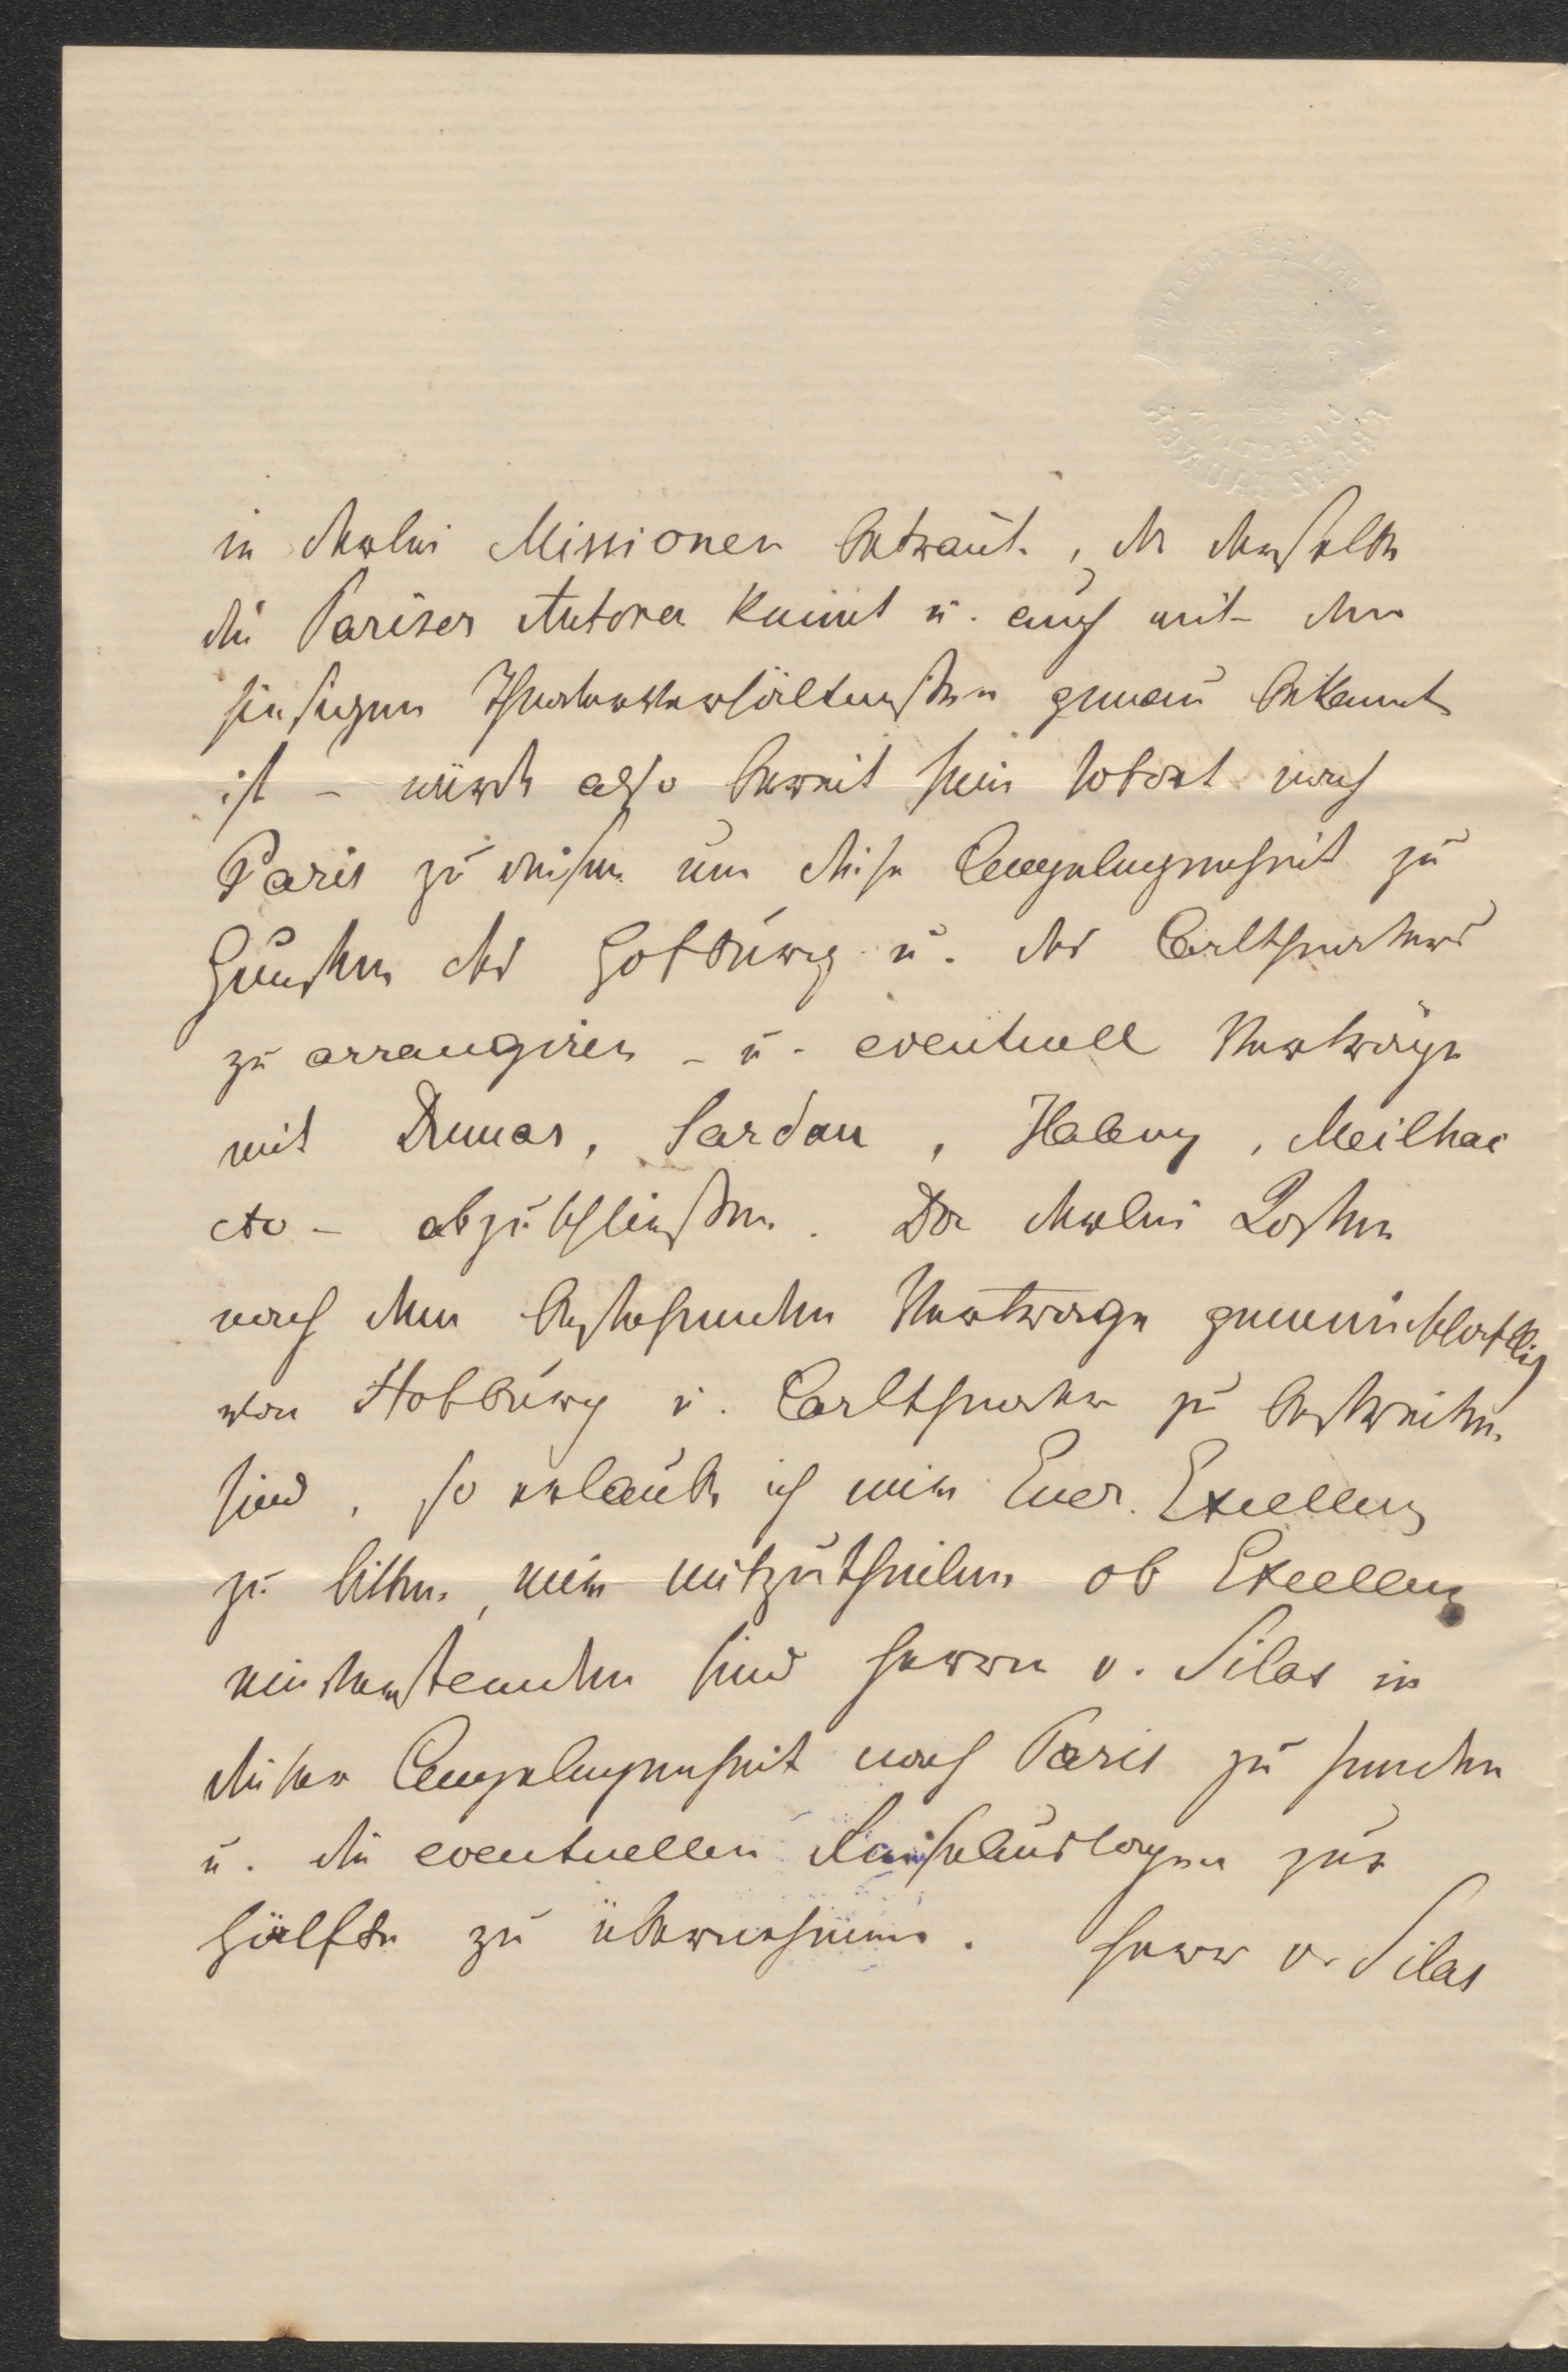 in derlei Missionen betraut, da derselbe
die Pariser Autoren kennt u. auch mit den
hiesigen Theaterverhältnissen genau bekannt
ist – würde also bereit sein sofort nach
Paris zu reisen um diese Angelegenheit zu
Gunsten der Hofburg u. des Carltheaters
zu arrangiren – u. eventuell Verträge
mit Dumas, Sardou, Halevy, Meilhac
etc – abzuschließen. Da derlei Kosten
nach dem bestehenden Vertrage gemeinschaftlich
von Hofburg u. Carltheater zu bestreiten
sind, so erlaube ich mir Euer Excellenz
zu bitten, mir mitzutheilen ob Excellenz
einverstanden sind Herrn v. Silas in
dieser Angelegenheit nach Paris zu senden
u. die eventuellen Reiseauslagen zur
Hälfte zu übernehmen. Herr v. Silas
FRANZ JAUNER
DIRECTION